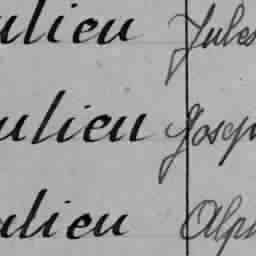 ulieu Jules
ulieu Josep
ulieu Alph